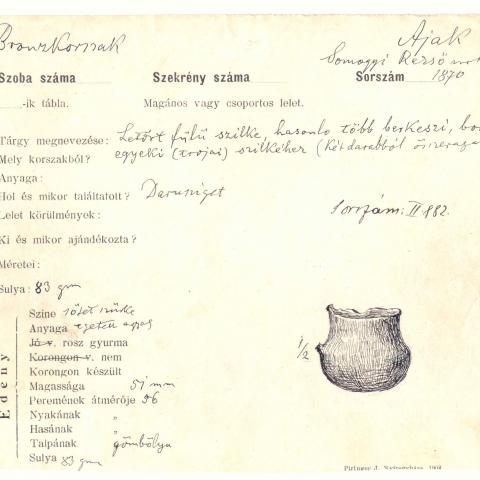 Bronzkorszak
Ajak
Somogyi Rezső
Szoba száma
Szekrény száma
Sorszám 1870
-ik tábla.
Magános vagy csoportos lelet.
Tárgy megnevezése: Letört fülű szilke, hasonló több berkeszi,
Mely korszakból? egyeki (trójai) szilkéhez (Két darabból
Anyaga:
Hol és mikor találtatott? Darusziget
Lelet körülmények:
Sorszám: II. 882.
Ki és mikor ajándékozta?
Méretei:
Sulya: 83 gm
Edény
Szine sötét szürke
Anyaga égetett agyag
Jó v. rosz gyurma
Korongon v. nem
Korongon készült
Magassága 51 mm
Peremének átmérője 56
Nyakának „
Hasának „
Talpának gömbölyű
Sulya 83 gm
1/2
Piringer J. Nyíregyháza,